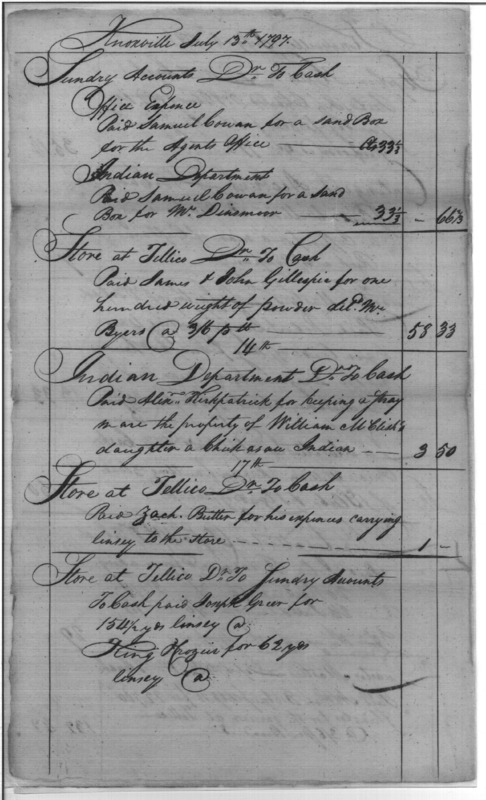 Knoxville July 13th 1797.
Sundry Accounts Dr To Cash
Office Expence
Paid Samuel Cowan for a sand Box
for the Agents Office — Cts 33⅓
Indian Department
Paid Samuel Cowan for a sand
Box for Mr Dinsmoor — 33⅓ — 66⅔
Store at Tellico Dr To Cash
Paid James & John Gillespie for one
hundred weight of powder deld Mr
Byers @ 3/6 p lb — 58 33
14th
Indian Department Dr To Cash
Paid Alexr Kirkpatrick for keeping a stray
mare the property of William
daughter a Chickasaw Indian — 3 50
17th
Store at Tellico Dr To Cash
Paid Zach. for his expences carrying
linsey to the store — 1 –
Store at Tellico Dr To Sundry Accounts
To Cash paid Joseph Greer for
154½ yds linsey @
King & Crozier for 62 yds
linsey @